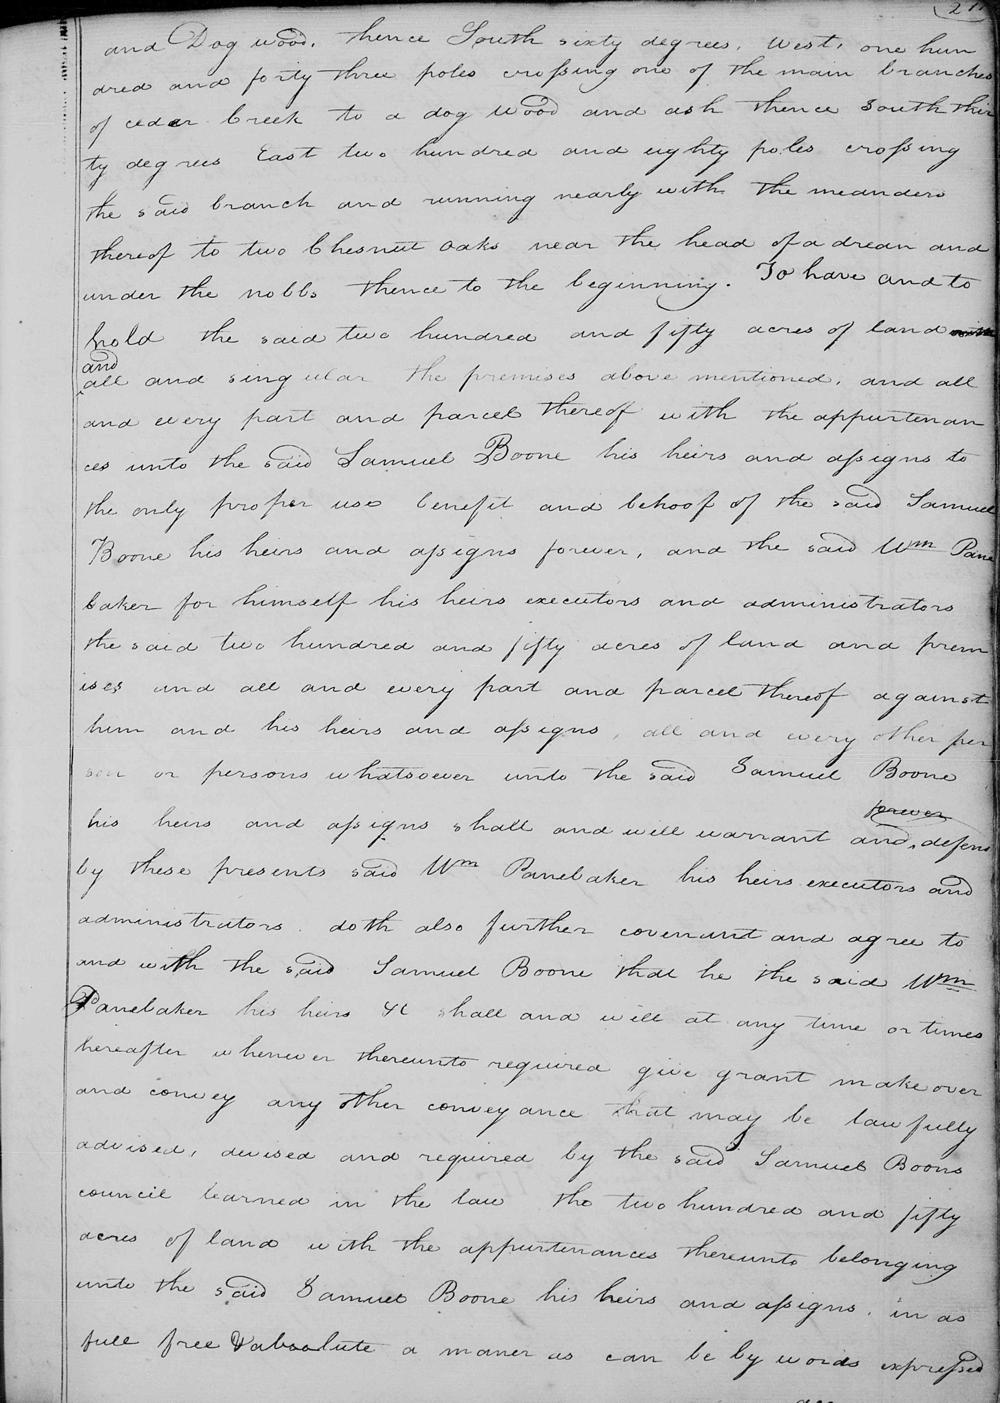 and Dog wood, thence South sixty degrees, West, one hun
dred and forty three poles crossing one of the main branches
of cedar Creek to a dog wood and ash thence South thir
ty degrees East two hundred and eighty poles crossing
the said branch and running nearly with the meanders
thereof to two Chesnut oaks near the head of a drean and
under the nobbs thence to the beginning. To have and to
hold the said two hundred and fifty acres of land
and
all and singular the premises above mentioned, and all
and every part and parcel thereof with the appurtenan
ces unto the said Samuel Boone his heirs and assigns to
the only proper use benefit and behoof of the said Samuel
Boone his heirs and assigns forever, and the said Wm Pane
baker for himself his heirs executors and administrators
the said two hundred and fifty acres of land and prem
ises and all and every part and parcel thereof against
him and his heirs and assigns, all and every other per
son or persons whatsoever unto the said Samuel Boone
forever
his heirs and assigns shall and will warrant and defend
by these presents said Wm Panebaker his heirs executors and
administrators. doth also further covenant and agree to
and with the said Samuel Boone that he the said Wm
Panebaker his heirs &c shall and will at any time or times
hereafter whenever thereunto required give grant make over
and convey any other conveyance that may be lawfully
advised, devised and required by the said Samuel Boons
council learned in the law the two hundred and fifty
acres of land with the appurtenances thereunto belonging
unto the said Samuel Boone his heirs and assigns. in as
full free & absolute a maner as can be by words expressed